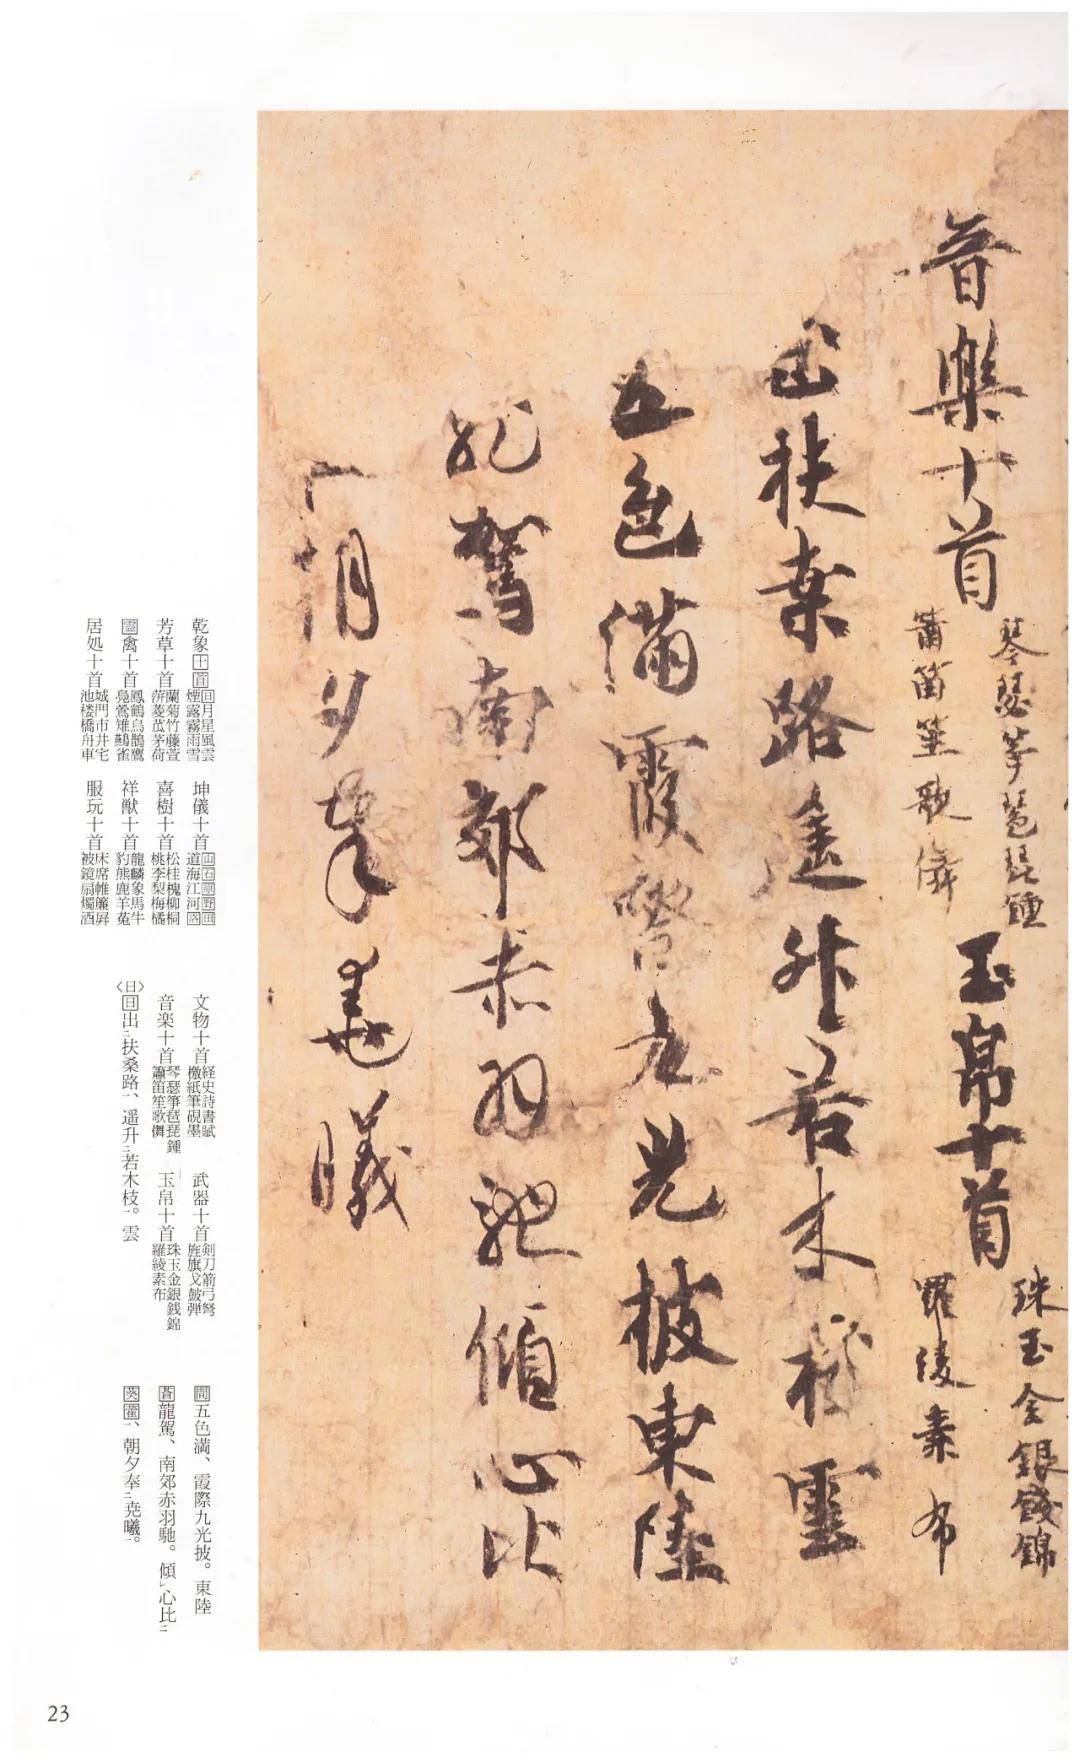 音樂十首
琴瑟箏琶琵鍾
簫笛笙歌儛
玉帛十首
珠玉金銀錢錦
羅綾素布
出扶桒路遥升若木枝雲
五色滿霞際九光披東陸
龍駕南郊赤羽馳傾心比
朝夕奉尭曦
乾象十首 日月星風雲
煙露霧雨雪
坤儀十首 山石原野田
道海江河路
芳草十首 蘭菊竹藤萱
萍菱苽茅荷
喜樹十首 松桂槐柳桐
桃李梨梅橘
霊禽十首 鳳鶴烏鵲鷹
鳧鶯雉鷰雀
祥獣十首 龍麟象馬牛
豹熊鹿羊菟
居処十首 城門市井宅
池楼橋舟車
服玩十首 床席帷簾屛
被鏡扇燭酒
文物十首 経史詩書賦
檄紙筆硯墨
武器十首 剣刀箭弓弩
旌旗戈皷弾
音楽十首 琴瑟箏琶琵鍾
簫笛笙歌儛
玉帛十首 珠玉金銀銭錦
羅綾素布
〈日〉日出二扶桑路一、遥升二若木枝一。雲
間五色満、霞際九光披。東陸
蒼龍駕、南郊赤羽馳。傾レ心比二
葵藿一、朝夕奉二尭曦一。
23